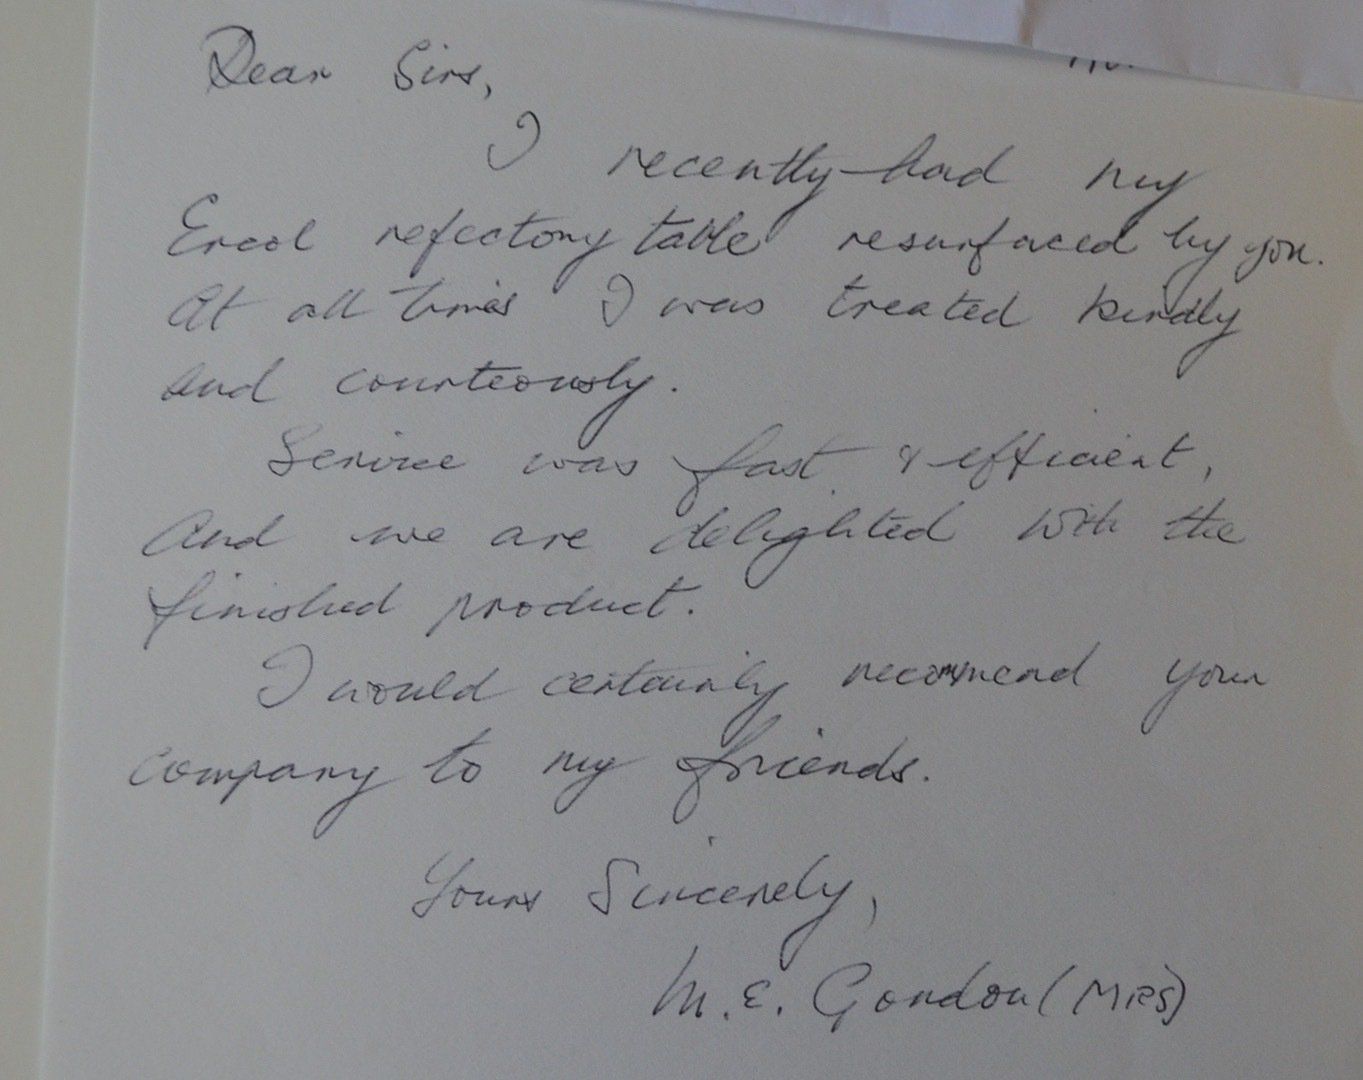 Dear Sirs,
I recently had my
Ercol refectory table resurfaced by you.
At all times I was treated kindly
and courteously.
Service was fast & efficient,
and we are delighted with the
finished product.
I would certainly recommend your
company to my friends.
Yours Sincerely,
M.E. Gordon (MRS)